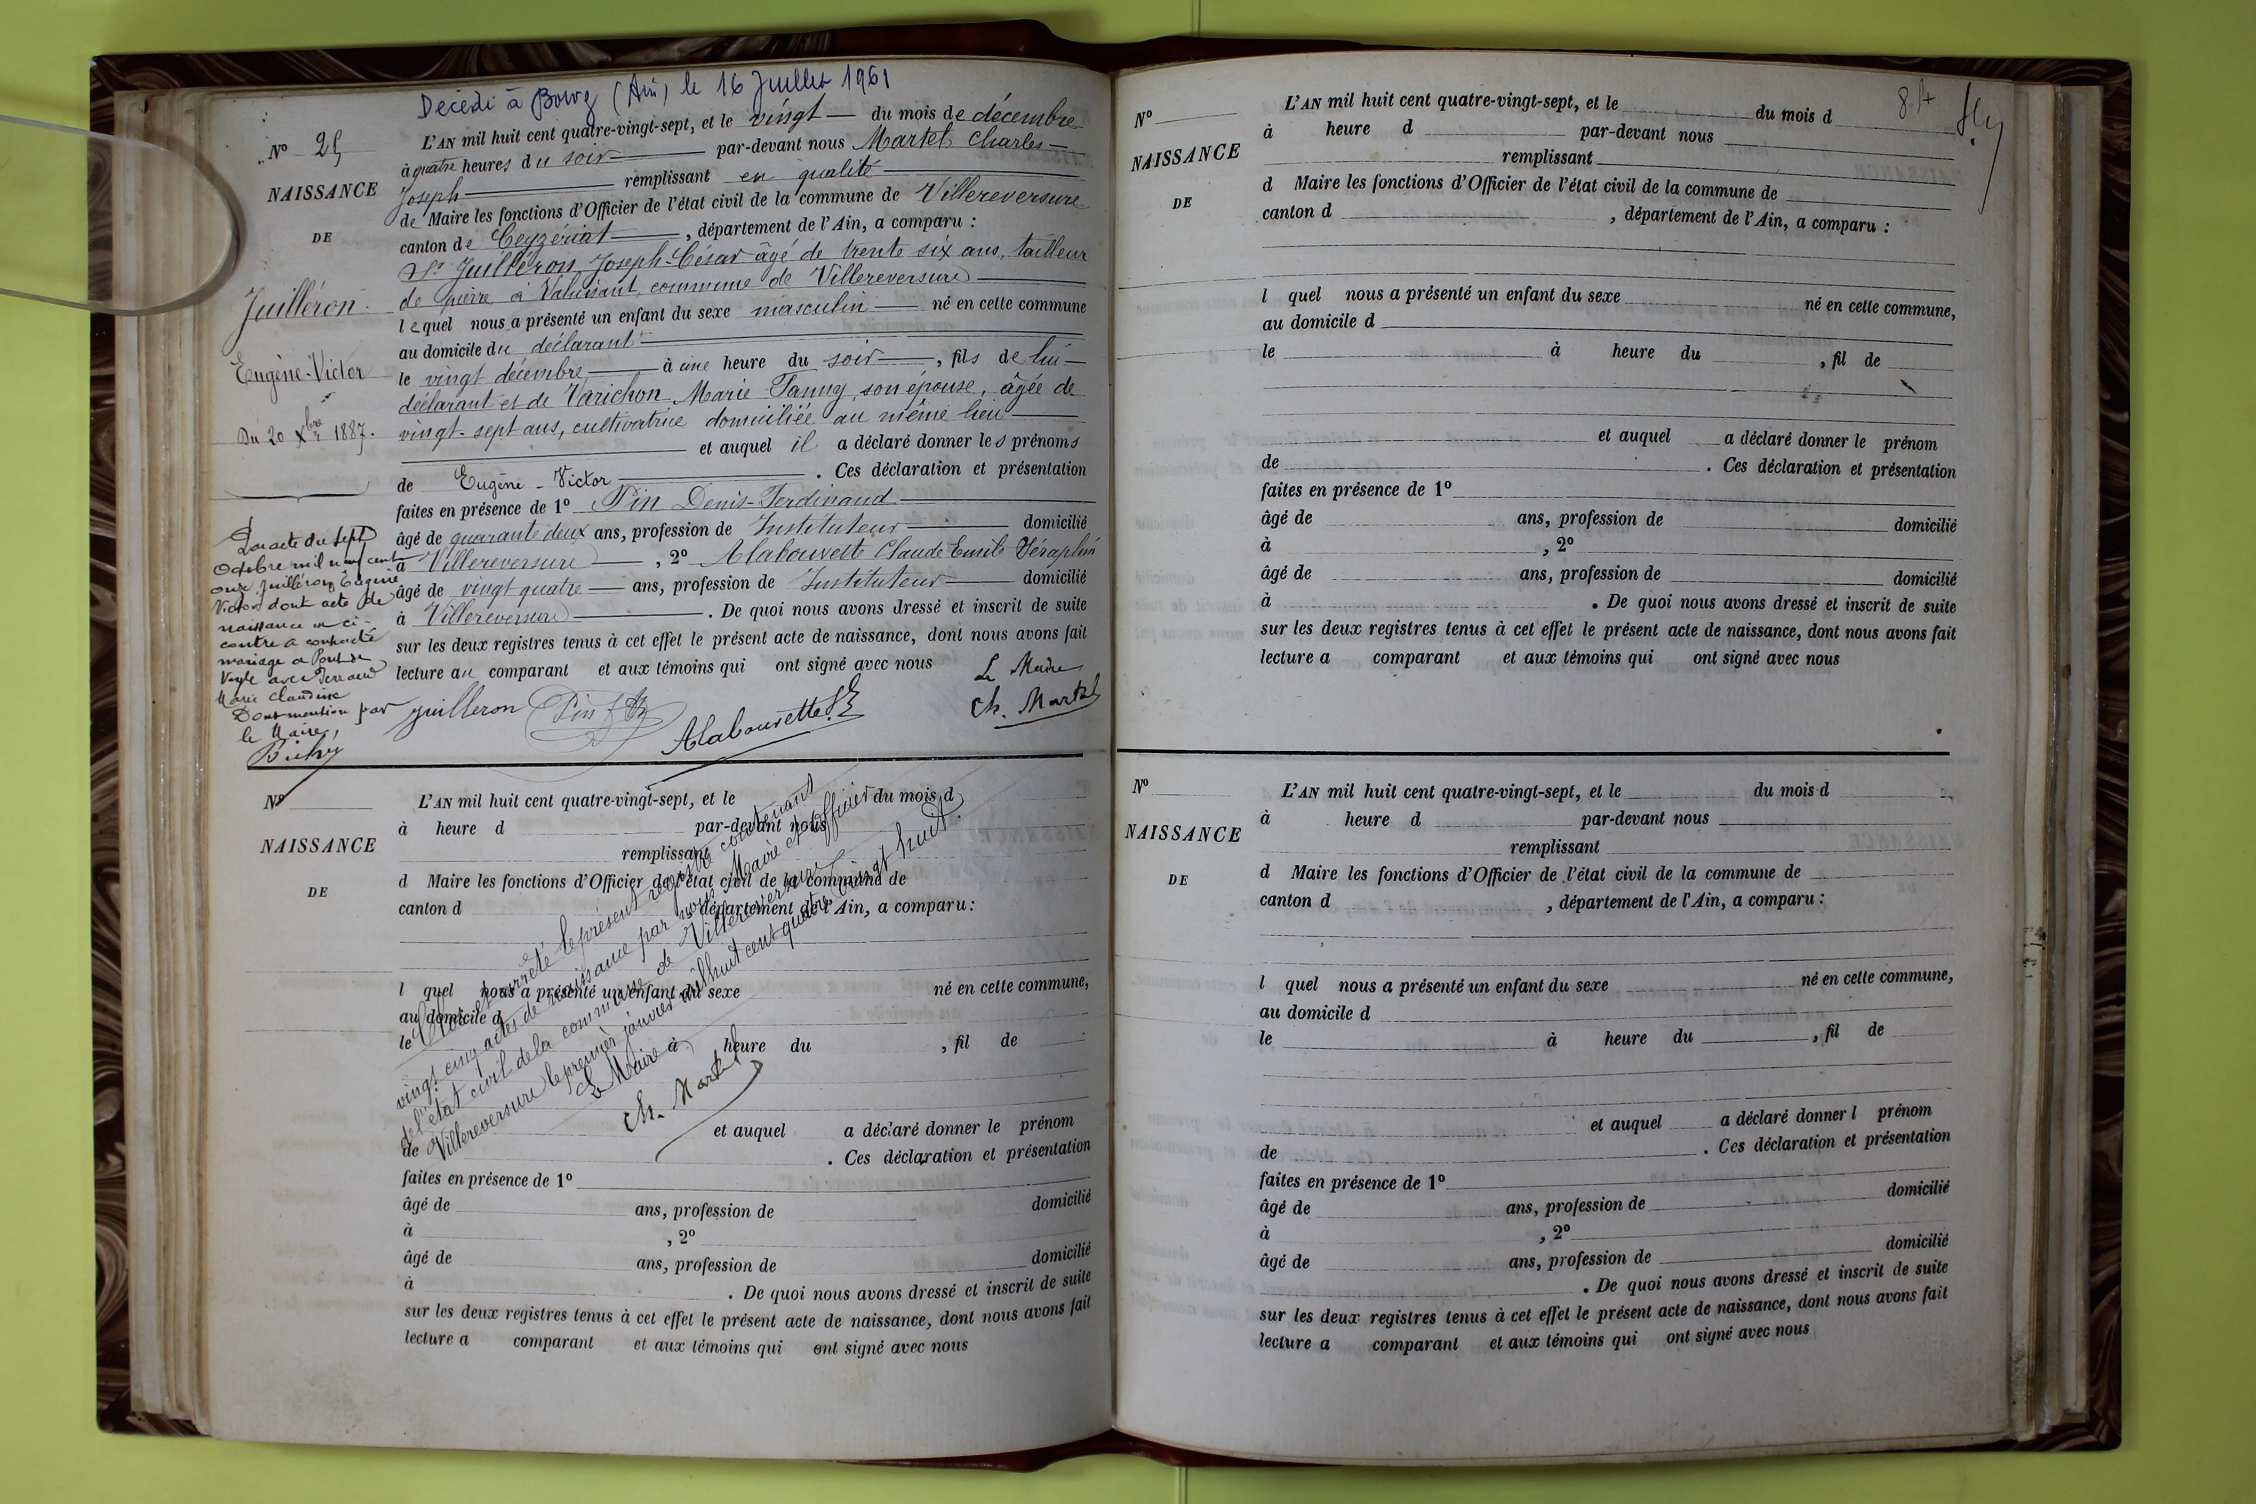 Décédé à Bourg (Ain) le 16 Juillet 1961
N° 25
NAISSANCE
DE
Juilléron
Eugène-Victor
Du 20 Xbre 1887.
L'AN mil huit cent quatre-vingt-sept, et le vingt du mois de décembre
à quatre heures du soir par-devant nous Martel Charles
Joseph remplissant en qualité
de Maire les fonctions d'Officier de l'état civil de la commune de Villereversure
canton de Ceyzériat, département de l'Ain, a comparu :
Sr Juilléron Joseph-César âgé de trente six ans, tailleur
de pierre à commune de Villereversure
lequel nous a présenté un enfant du sexe masculin né en cette commune
au domicile du déclarant
le vingt décembre à une heure du soir, fils de lui
déclarant et de Varichon Marie Fanny, son épouse, âgée de
vingt-sept ans, cultivatrice domiciliée au même lieu
et auquel il a déclaré donner les prénoms
de Eugène-Victor. Ces déclaration et présentation
faites en présence de 1° Pin Denis-Ferdinand
âgé de quarante deux ans, profession de Instituteur domicilié
à Villereversure, 2° Alabouvette Claude Emile Séraphin
âgé de vingt quatre ans, profession de Instituteur domicilié
à Villereversure. De quoi nous avons dressé et inscrit de suite
sur les deux registres tenus à cet effet le présent acte de naissance, dont nous avons fait
lecture au comparant et aux témoins qui ont signé avec nous
Le Maire
Juilleron Pin Alabouvette Ch. Martel
Par acte du sept
Octobre mil neuf cent
onze Juilléron Eugène
Victor dont acte de
naissance en ci-
contre a contracté
mariage à Pont de
Veyle avec
Marie Claudine
Dont mention par
le Maire,
N°
NAISSANCE
DE
L'AN mil huit cent quatre-vingt-sept, et le du mois d
à heure d par-devant nous
remplissant
d Maire les fonctions d'Officier de l'état civil de la commune de
canton d département de l'Ain, a comparu :
l quel nous a présenté un enfant du sexe né en cette commune,
au domicile d
le à heure du, fil de
et auquel a déclaré donner le prénom
de. Ces déclaration et présentation
faites en présence de 1°
âgé de ans, profession de domicilié
à, 2°
âgé de ans, profession de domicilié
à. De quoi nous avons dressé et inscrit de suite
sur les deux registres tenus à cet effet le présent acte de naissance, dont nous avons fait
lecture a comparant et aux témoins qui ont signé avec nous
Clos et arrêté le présent registre contenant
vingt cinq actes de naissance par nous Maire et officier
de l'état civil de la commune de Villereversure
Villereversure le premier janvier mil huit cent quatre vingt huit.
Le Maire
Ch. Martel
84
N°
NAISSANCE
DE
L'AN mil huit cent quatre-vingt-sept, et le du mois d
à heure d par-devant nous
remplissant
d Maire les fonctions d'Officier de l'état civil de la commune de
canton d, département de l'Ain, a comparu :
l quel nous a présenté un enfant du sexe né en cette commune,
au domicile d
le à heure du, fil de
et auquel a déclaré donner le prénom
de. Ces déclaration et présentation
faites en présence de 1°
âgé de ans, profession de domicilié
à, 2°
âgé de ans, profession de domicilié
à. De quoi nous avons dressé et inscrit de suite
sur les deux registres tenus à cet effet le présent acte de naissance, dont nous avons fait
lecture a comparant et aux témoins qui ont signé avec nous
N°
NAISSANCE
DE
L'AN mil huit cent quatre-vingt-sept, et le du mois d
à heure d par-devant nous
remplissant
d Maire les fonctions d'Officier de l'état civil de la commune de
canton d, département de l'Ain, a comparu :
l quel nous a présenté un enfant du sexe né en cette commune,
au domicile d
le à heure du, fil de
et auquel a déclaré donner l prénom
de. Ces déclaration et présentation
faites en présence de 1°
âgé de ans, profession de domicilié
à, 2°
âgé de ans, profession de domicilié
. De quoi nous avons dressé et inscrit de suite
sur les deux registres tenus à cet effet le présent acte de naissance, dont nous avons fait
lecture a comparant et aux témoins qui ont signé avec nous